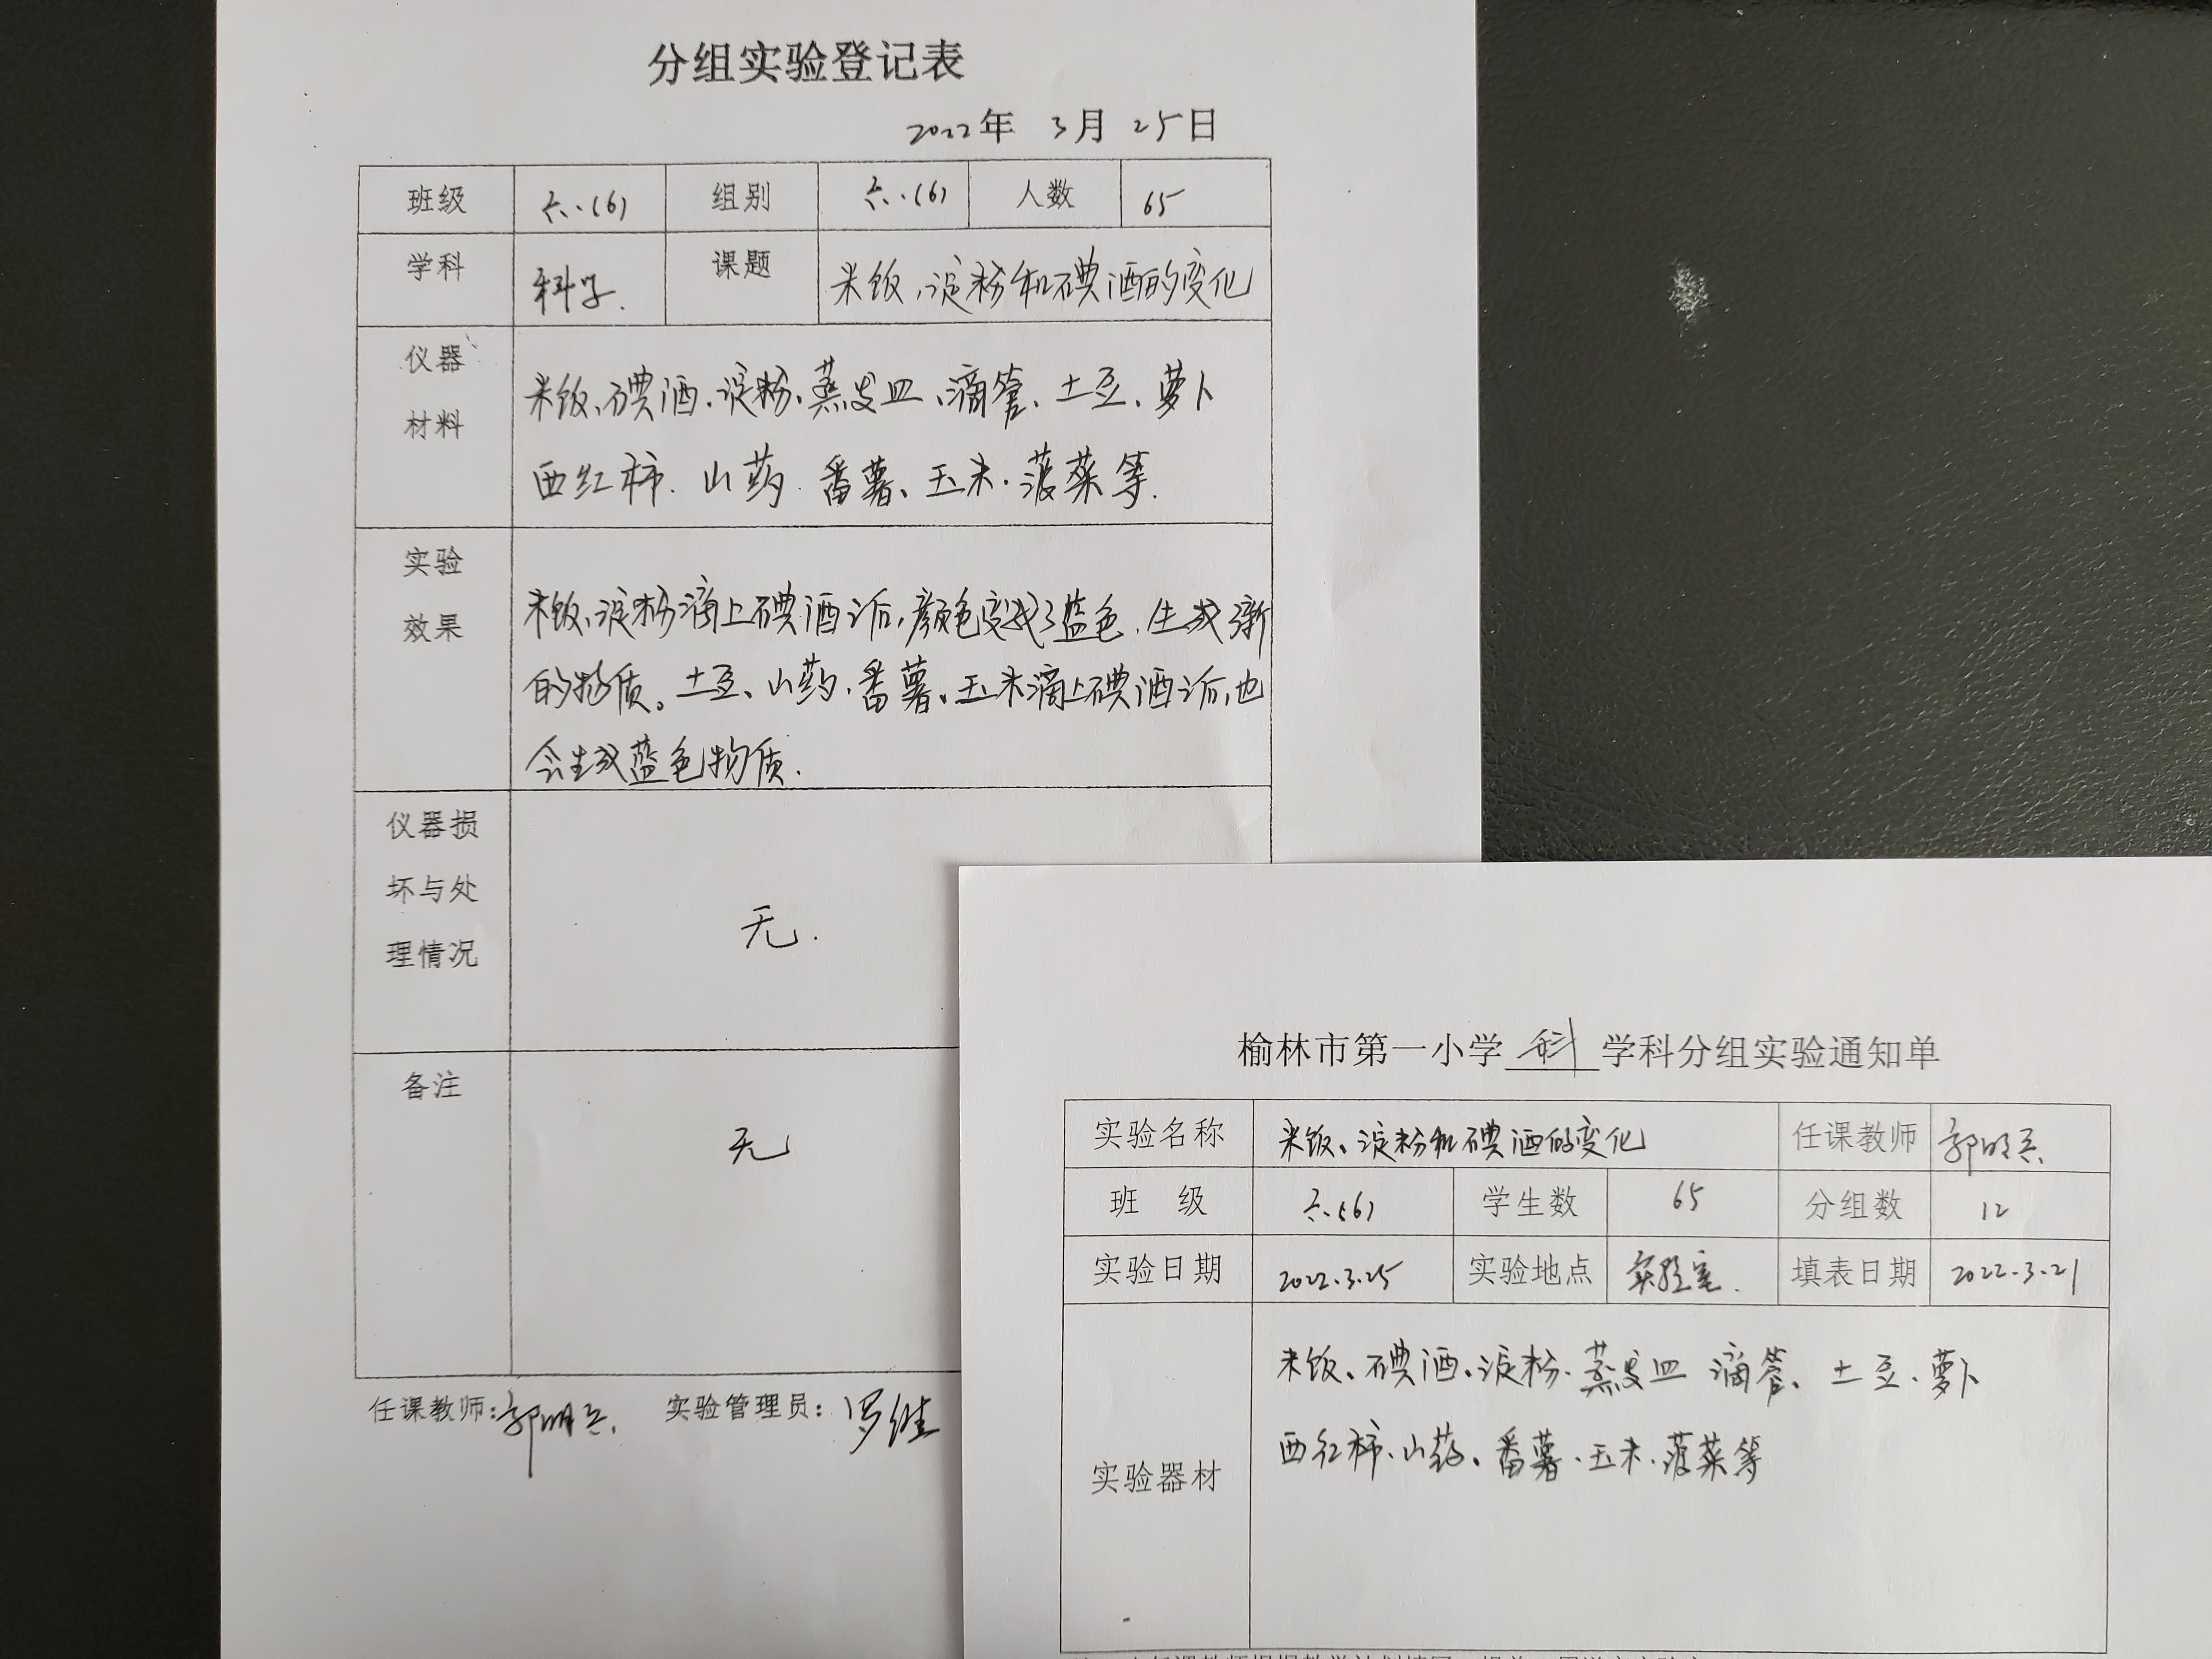 分组实验登记表
2022年 3月 25日
班级 六.(6) 组别 六.(6) 人数 65
学科 科学. 课题 米饭,淀粉和碘酒的变化
仪器
材料
米饭、碘酒.淀粉、蒸发皿、滴管、土豆、萝卜
西红柿.山药.番薯、玉米.菠菜等.
实验
效果
米饭、淀粉滴上碘酒后,颜色变成了蓝色.生成了新
的物质。土豆、山药.番薯、玉米滴上碘酒后,也
会生成蓝色物质.
仪器损
坏与处
理情况
无.
备注
无
任课教师:郭明兵. 实验管理员:罗维
榆林市第一小学 科 学科分组实验通知单
实验名称 米饭、淀粉和碘酒的变化 任课教师 郭明兵.
班 级 六.(6) 学生数 65 分组数 12
实验日期 2022.3.25 实验地点 实验室. 填表日期 2022.3.21
实验器材
米饭、碘酒、淀粉.蒸发皿 滴管、土豆.萝卜
西红柿、山药、番薯.玉米.菠菜等